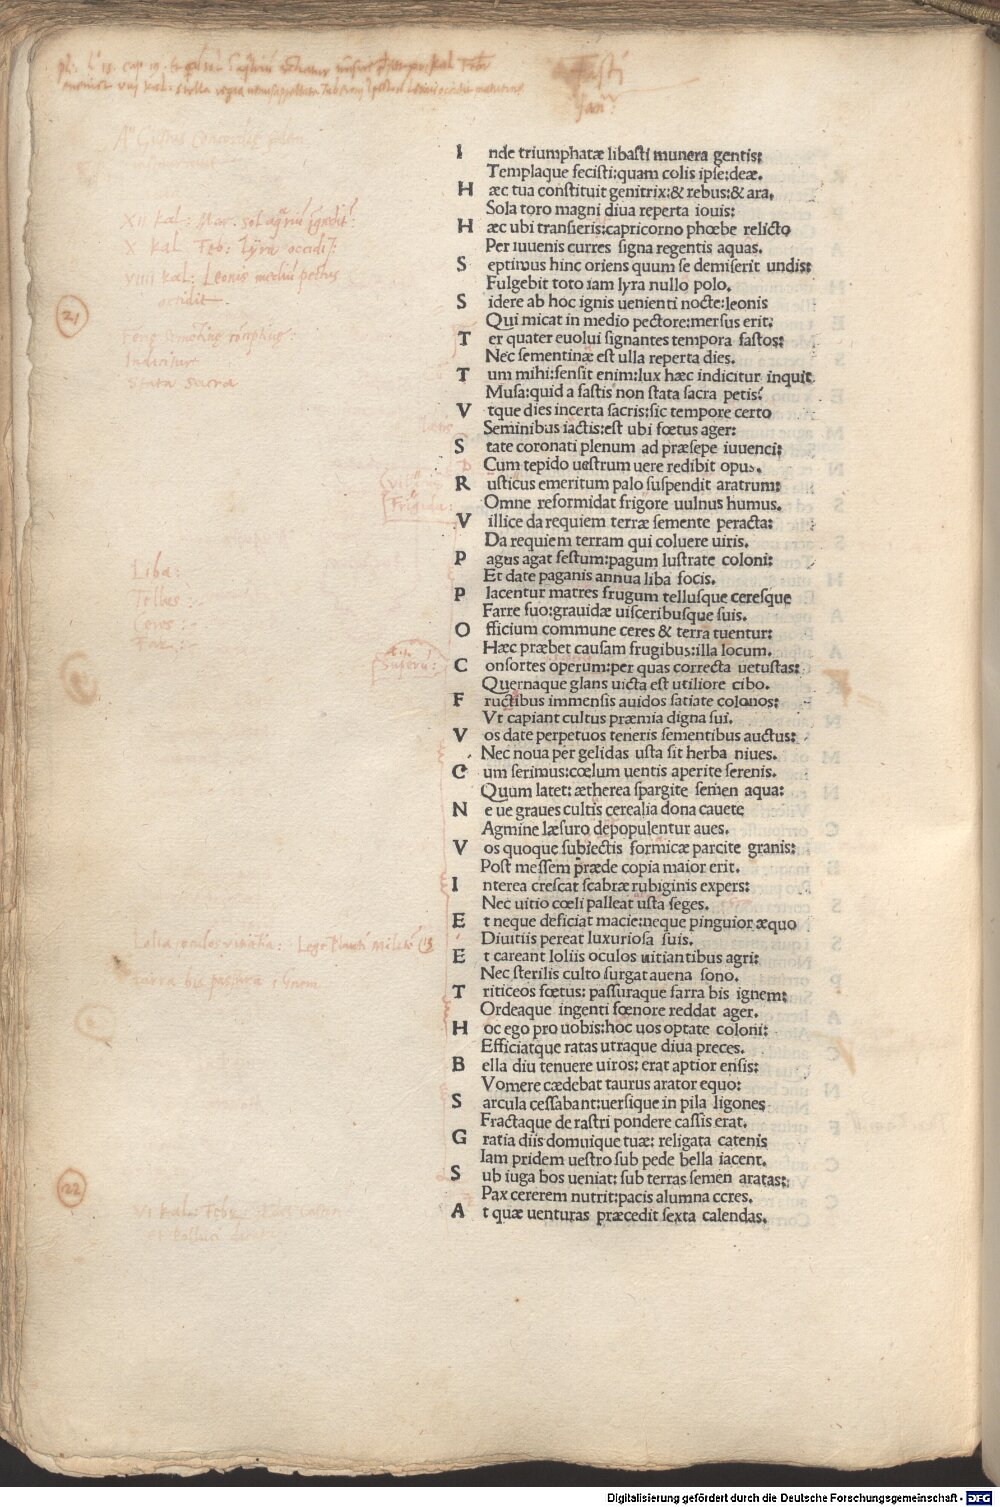 Fasti
I nde triumphatæ libasti munera gentis:
Templaque fecisti:quam colis ipse:deæ.
H æc tua constituit genitrix:& rebus:& ara.
Sola toro magni diua reperta iouis:
H æc ubi transieris:capricorno phœbe relicto
Per iuuenis curres signa regentis aquas.
S eptimus hinc oriens quum se demiserit undis:
Fulgebit toto iam lyra nullo polo.
S idere ab hoc ignis uenienti nocte:leonis
Qui micat in medio pectore:mersus erit:
T er quater euolui signantes tempora fastos:
Nec sementinæ est ulla reperta dies.
T um mihi:sensit enim:lux hæc indicitur inquit
Musa:quid a fastis non stata sacra petis?
V tque dies incerta sacris:sic tempore certo
Seminibus iactis:est ubi fœtus ager:
S tate coronati plenum ad præsepe iuuenci:
Cum tepido uestrum uere redibit opus.
R usticus emeritum palo suspendit aratrum:
Omne reformidat frigore uulnus humus.
V illice da requiem terræ semente peracta:
Da requiem terram qui coluere uiris.
P agus agat festum:pagum lustrate coloni:
Et date paganis annua liba focis.
P lacentur matres frugum tellusque ceresque
Farre suo:grauidæ uisceribusque suis.
O fficium commune ceres & terra tuentur:
Hæc præbet causam frugibus:illa locum.
C onsortes operum:per quas correcta uetustas:
Quernaque glans uicta est utiliore cibo.
F ructibus immensis auidos satiate colonos:
Vt capiant cultus præmia digna sui.
V os date perpetuos teneris sementibus auctus:
Nec noua per gelidas usta sit herba niues.
C um serimus:cœlum uentis aperite serenis.
Quum latet: ætherea spargite semen aqua:
N e ue graues cultis cerealia dona cauete
Agmine læsuro depopulentur aues.
V os quoque subiectis formicæ parcite granis:
Post messem præde copia maior erit.
I nterea crescat scabræ rubiginis expers:
Nec uitio cœli palleat usta seges.
E t neque deficiat macie:neque pinguior æquo
Diuitiis pereat luxuriosa suis.
E t careant loliis oculos uitiantibus agri:
Nec sterilis culto surgat auena sono.
T riticeos fœtus: passuraque farra bis ignem:
Ordeaque ingenti fœnore reddat ager.
H oc ego pro uobis:hoc uos optate coloni:
Efficiatque ratas utraque diua preces.
B ella diu tenuere uiros: erat aptior ensis:
Vomere cædebat taurus arator equo:
S arcula cessabant:uersique in pila ligones
Fractaque de rastri pondere cassis erat.
G ratia diis domuique tuæ: religata catenis
Iam pridem uestro sub pede bella iacent.
S ub iuga bos ueniat: sub terras semen aratas:
Pax cererem nutrit:pacis alumna ceres.
A t quæ uenturas præcedit sexta calendas.
X kal. Feb: Lyra occidit
VIIII kal: Leonis medium pectus
occidit
21
Indicitur
Stata sacra
Frigida:
Liba:
Tellus:
Ceres:
Far:
Superu:
22
Digitalisierung gefördert durch die Deutsche Forschungsgemeinschaft - DFG